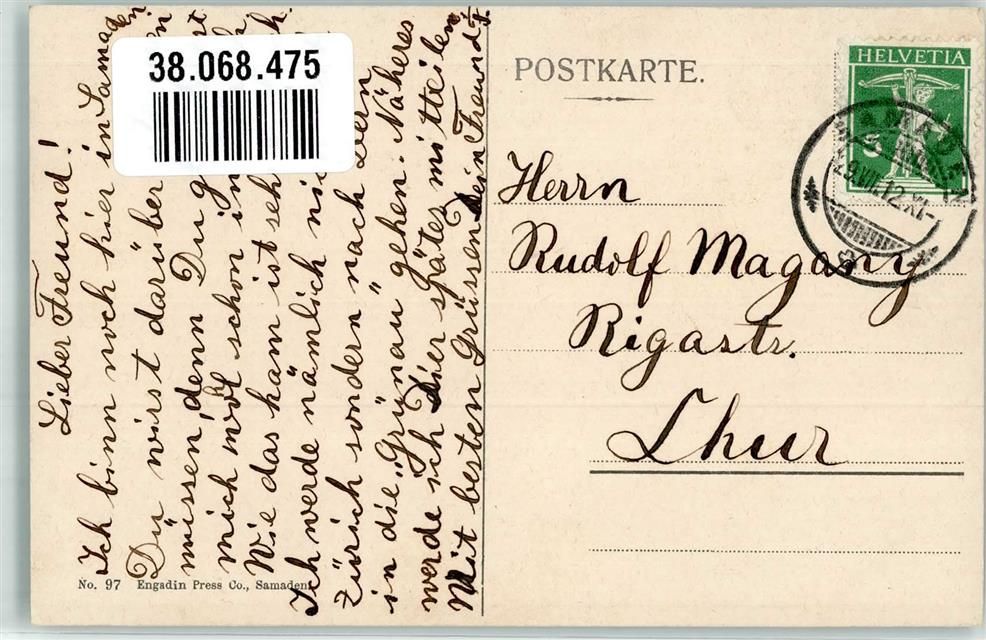 38.068.475
Lieber Freund!
Ich binn noch hier in Samaden
Du wirst darüber
müssen, denn Du g
mich wol schon in
Wie das kam ist seh
Ich werde nämlich nic
Zürich sondern nach Bern
in die „Grünau" gehen. Näheres
werde ich Dier spätes mitteilen
Mit besten Grüssen Dein Freund
No. 97 Engadin Press Co., Samaden
POSTKARTE.
HELVETIA
5
29.VII.12.XI-
Herrn
Rudolf Magany
Rigastr.
Chur